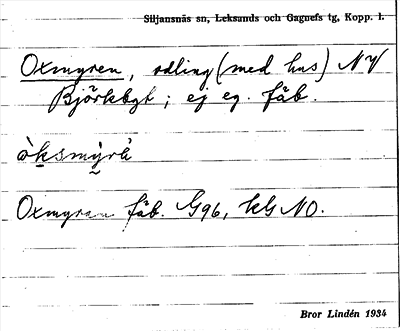 Siljansnäs sn, Leksands och Gagnefs tg, Kopp. l.
Oxmyren, odling (med hus) NV
Björkbgt; ej eg. fäb.
òksmỳrå̀
Oxmyran fäb. G96, kG NO.
Bror Lindén 1934